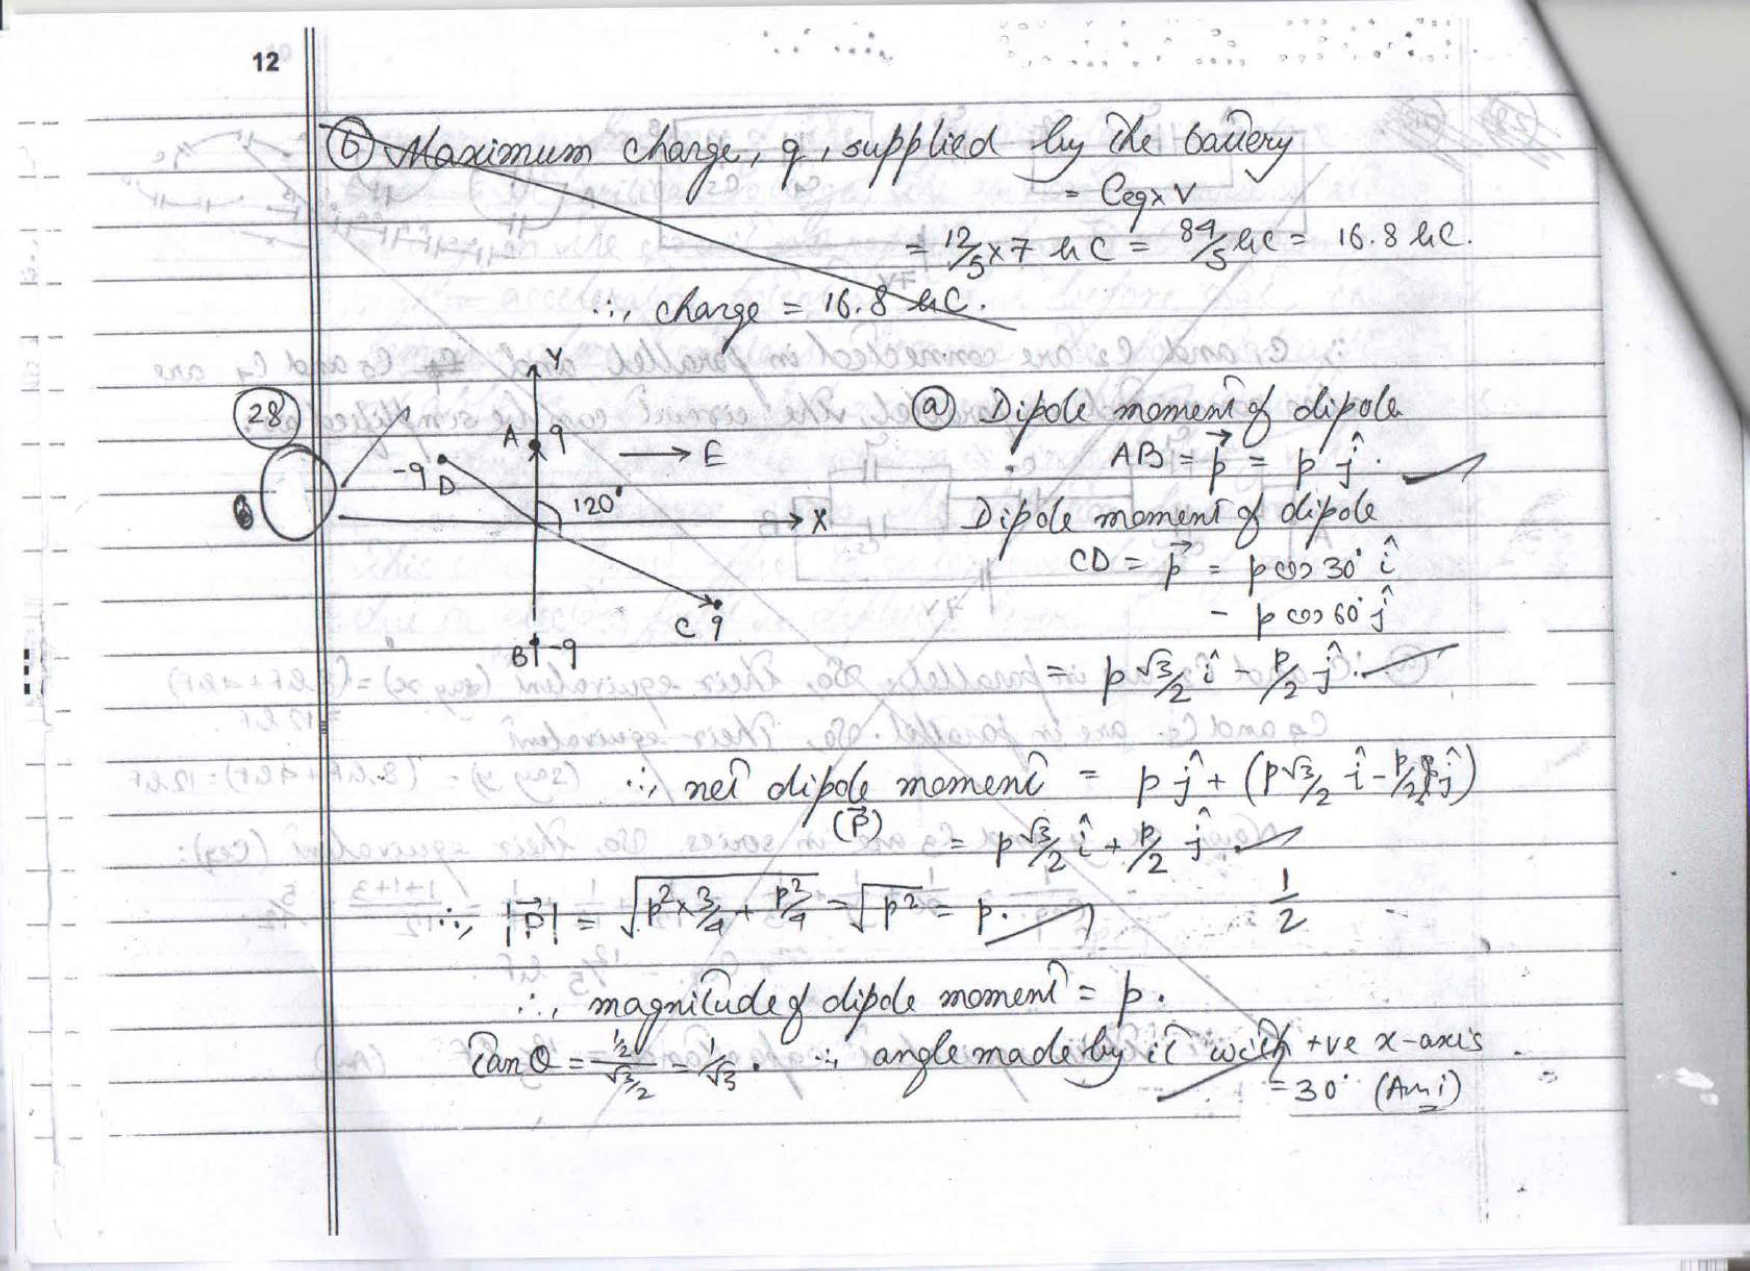 12
(b) Maximum charge, q, supplied by the battery
= Ceq x V
= 12/5 x 7 μC = 84/5 μC = 16.8 μC.
∴, charge = 16.8 μC.
28
Y
A q
-q
D
→ E
120°
X
C q
B -q
(a) Dipole moment of dipole
AB = p⃗ = p ĵ.
Dipole moment of dipole
CD = p⃗ = p cos 30° î
- p cos 60° ĵ
= p √3/2 î - p/2 ĵ.
∴, net dipole moment = p ĵ + (p √3/2 î - p/2 ĵ)
(P⃗)
= p √3/2 î + p/2 ĵ.
∴, |P⃗| = √(p² x 3/4 + p²/4) = √p² = p.
1/2
∴, magnitude of dipole moment = p.
Tan θ = (1/2)/(√3/2) = 1/√3. ∴, angle made by it with +ve x-axis
= 30° (Ans)